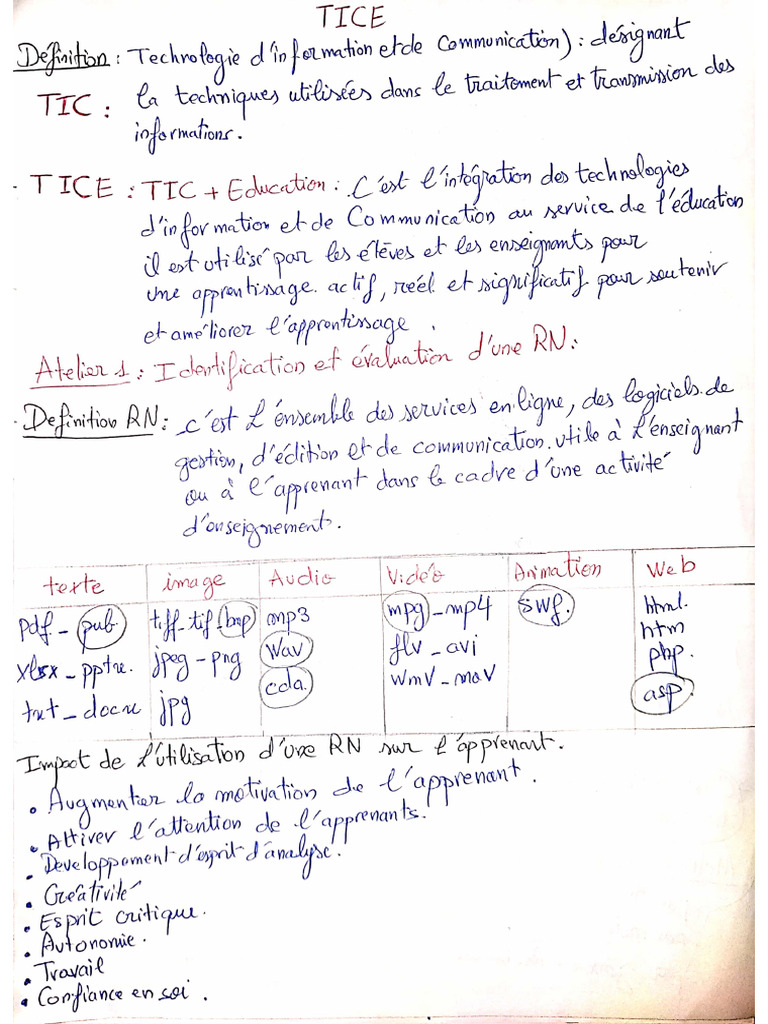 TICE
Définition : Technologie d'information et de Communication) : désignant
TIC : la techniques utilisées dans le traitement et transmission des
informations.
. TICE : TIC + Education : C'est l'intégration des technologies
d'information et de Communication au service de l'éducation
il est utilisé par les élèves et les enseignants pour
une apprentissage. actif, réel et significatif pour soutenir
et améliorer l'apprentissage .
Atelier 1 : Identification et évaluation d'une RN :
. Definition RN : c'est L'énsemble des services en ligne, des logiciels de
gestion, d'édition et de communication. utile à L'enseignant
ou à l'apprenant dans le cadre d'une activité
d'enseignement.
texte image Audio Vidéo Animation Web
Pdf - pub tiff-tif-bmp mp3 mpg - mp4 swf. html.
xlsx - pptx. jpeg - png Wav flv - avi htm
txt - docx jpg cda. wmv - mov php.
asp
Impact de L'utilisation d'une RN sur l'apprenant.
. Augmentier la motivation de l'apprenant.
. Attirer l'attention de l'apprenants.
. Developpement d'esprit d'analyse.
. Créativité
. Esprit critique.
. Autonomie.
. Travail
. Confiance en soi .